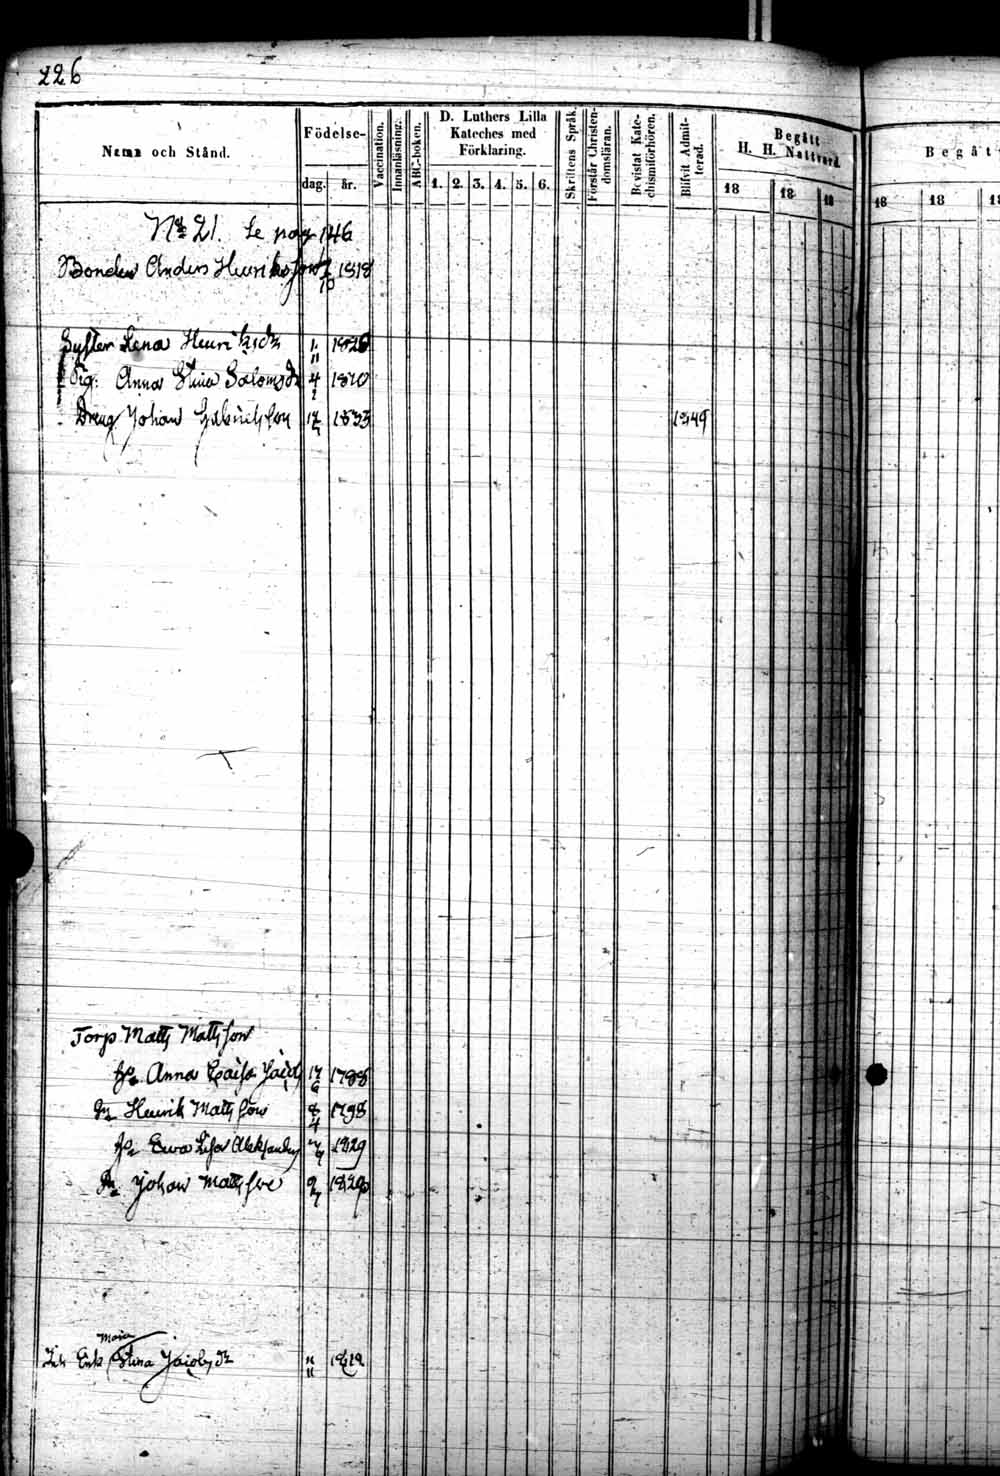 226
Namn och Stånd.
Födelse-
dag. år.
Vaccination.
Innanläsning.
ABC-boken.
D. Luthers Lilla Kateches med Förklaring.
1. 2. 3. 4. 5. 6.
Skriftens Språk.
Förstår Christendomsläran.
Bevistat Katechismiförhören.
Blifvit Admitterad.
Begått H. H. Nattvard.
18 18 18
Begått
18 18 18
No 21. Se pag 146
Bonden Anders Henriksson 1818
Syster Lena Henriksdr 1/11
Pig: Anna Stina Salomsdr 4/2 1820
Dreng Johan Gabrielsson 1833 1849
Torp Matts Mattsson
Anna Caisa 17/6 1788
Henrik Mattsson 8/4 1798
Ewa Lisa 1829
Johan Mattsson
Maja
Enk Stina Jacobsdr 1812